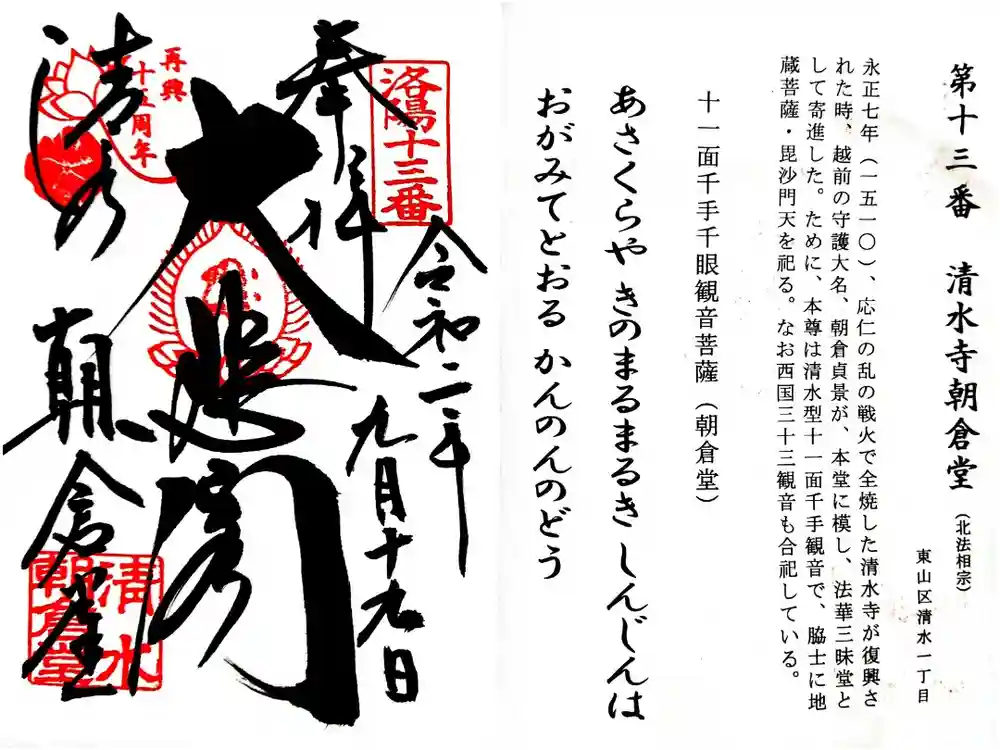 第十三番 清水寺朝倉堂（北法相宗）
東山区清水一丁目
永正七年（一五一〇）、応仁の乱の戦火で全焼した清水寺が復興さ
れた時、越前の守護大名、朝倉貞景が、本堂に模し、法華三昧堂と
して寄進した。ために、本尊は清水型十一面千手観音で、脇士に地
蔵菩薩・毘沙門天を祀る。なお西国三十三観音も合祀している。
十一面千手千眼観音菩薩（朝倉堂）
あさくらや きのまるまるき しんじんは
おがみてとおる かんのんのどう
洛陽十三番
奉拝
令和二年
九月十九日
大悲閣
再興
十五周年
清水
朝倉堂
清水
朝倉堂